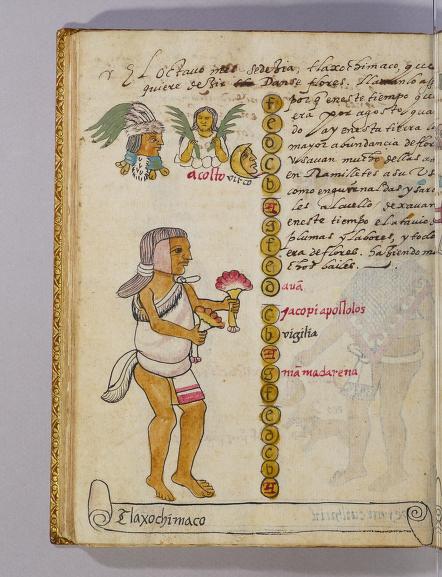 El octavo mes se deçia, tlaxochimaco, que
quiere desir Danse flores.
por q en este tiempo que
era por agosto, qua
do ay en esta tierra la
mayor abundancia de flor
Vsauan mucho dellas an
en Ramilletes a su Vs
como en guirnaldas y sar
les al cuello
en este tiempo el atauio d
plumas y labores, y todo
era de flores. haziendo m
chos bailes.
acolto
virgo
f
e
d
c
b
A
g
f
e
d
c
b
A
g
f
e
d
c
b
A
Jacopi apostolos
vigilia
mā madarena
Tlaxochimaco